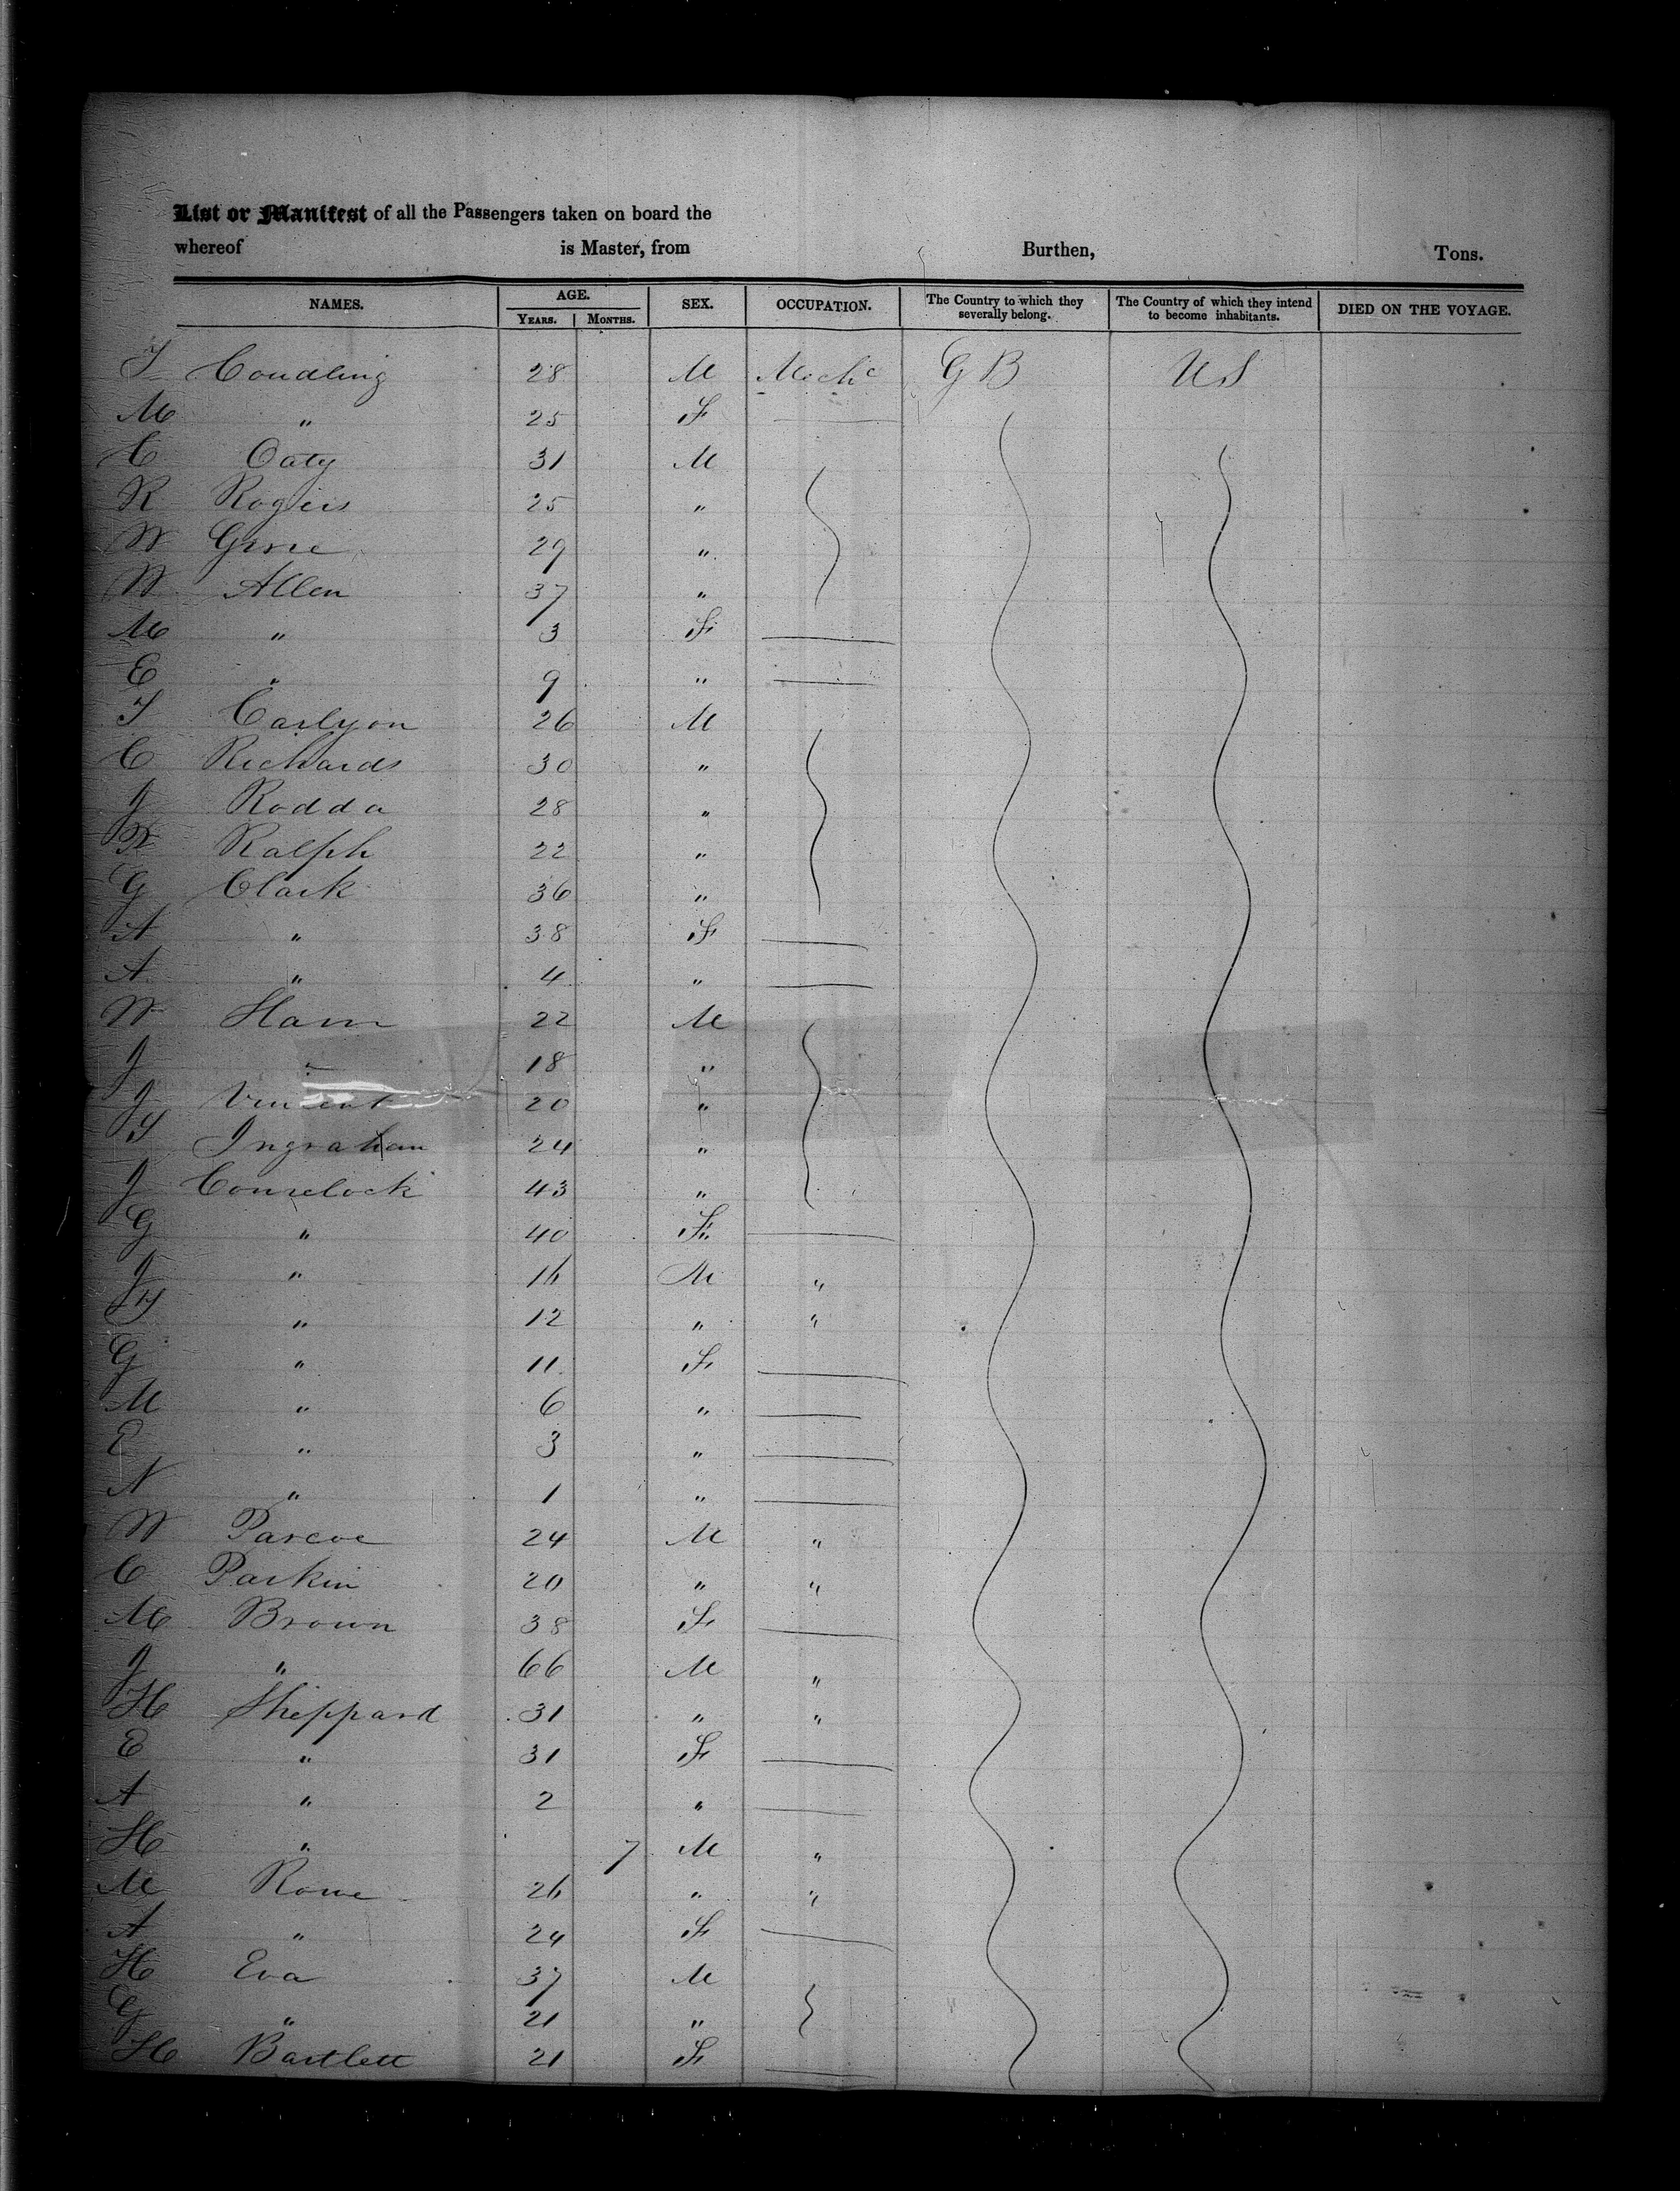 List or Manifest of all the Passengers taken on board the
whereof is Master, from Burthen, Tons.
NAMES. AGE. SEX. OCCUPATION. The Country to which they severally belong. The Country of which they intend to become inhabitants. DIED ON THE VOYAGE.
YEARS. MONTHS.
28 M Mechc G B U S
M " 25 F
C Oaty 31 M
R Rogers 25 "
W 29 "
W Allen 37 "
M " 3 F
E " 9 "
Carlyon 26 M
C Richards 30 "
J Rodda 28 "
Ralph 22 "
G Clark 36 "
A " 38 F
A " 4 "
W Ham 22 M
J " 18 "
J Vincent 20 "
Ingraham 24 "
J 43 "
G " 40 F
J " 16 M "
" 12 " "
G " 11 F
M " 6 "
E " 3 "
N " 1 "
W Pascoe 24 M "
C Parkin 20 " "
M Brown 38 F
J " 66 M "
H Sheppard 31 " "
E " 31 F
A " 2 "
H " 7 M "
M Rowe 26 " "
A " 24 F
H Eva 37 M
G " 21 "
H Bartlett 21 F